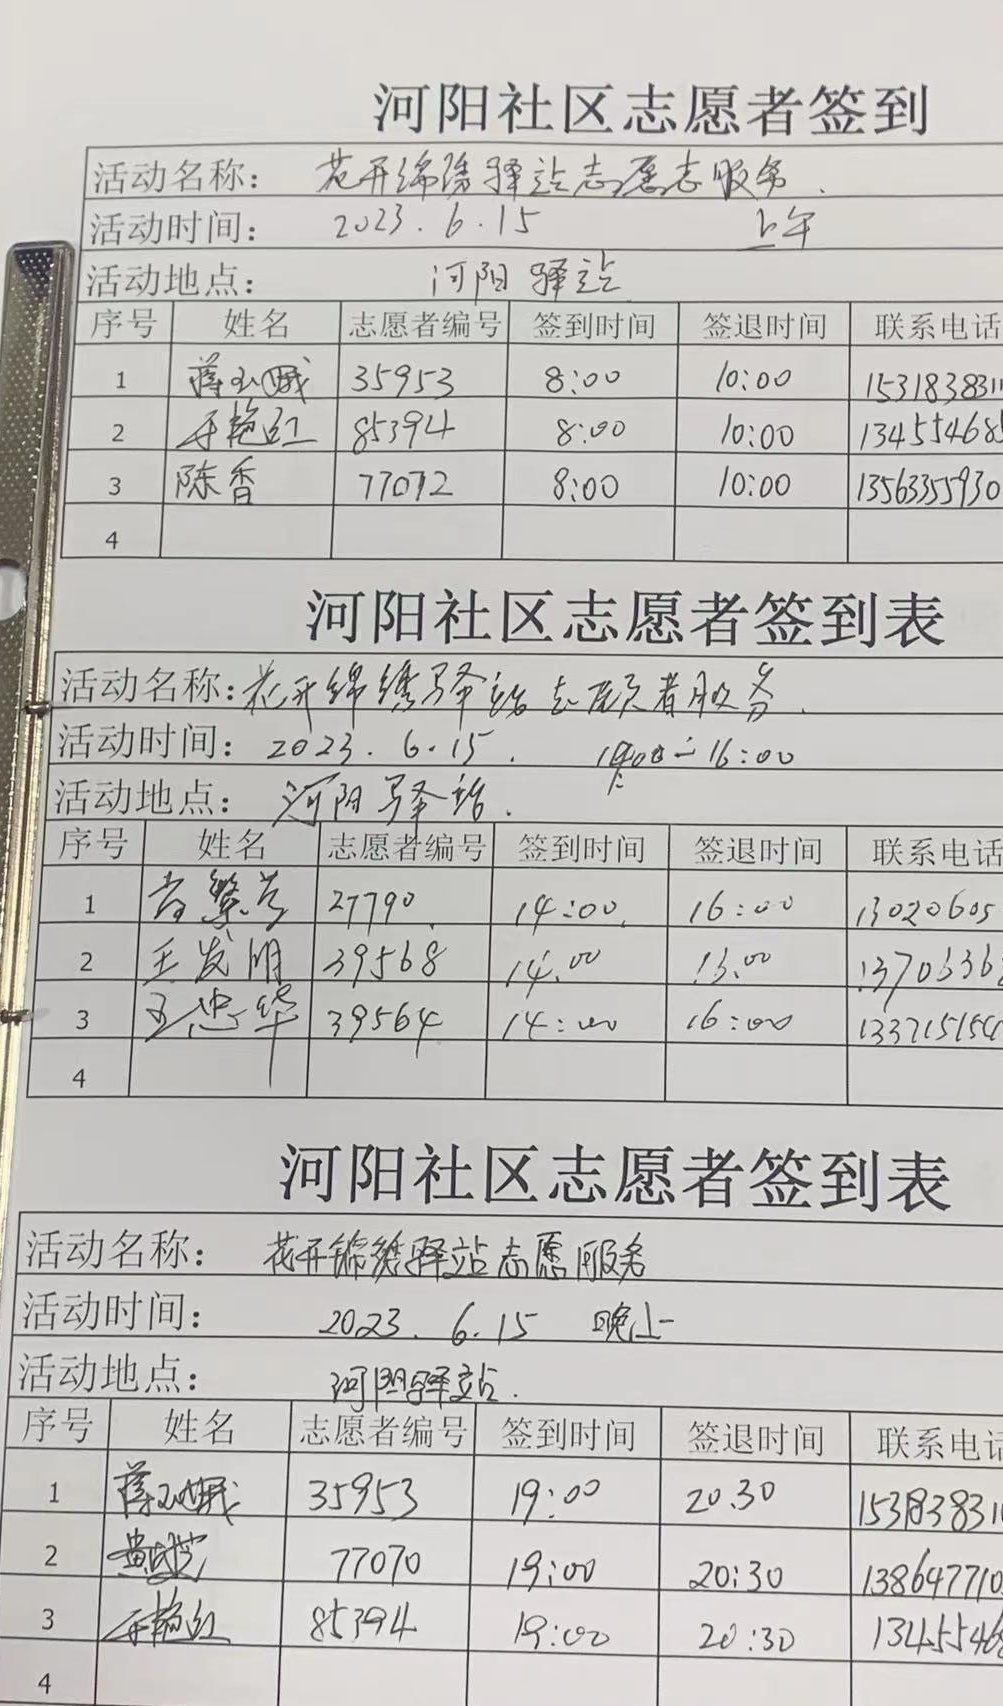 河阳社区志愿者签到
活动名称： 花开绵绣驿站志愿志服务.
活动时间： 2023.6.15 上午
活动地点： 河阳驿站
序号 姓名 志愿者编号 签到时间 签退时间 联系电话
1 蒋玉娥 35953 8:00 10:00 153183831
2 于艳红 85394 8:00 10:00 134554685
3 陈香 77072 8:00 10:00 13563355930
4
河阳社区志愿者签到表
活动名称: 花开绵绣驿站志愿者服务.
活动时间: 2023.6.15. 16:00
活动地点: 河阳驿站.
序号 姓名 志愿者编号 签到时间 签退时间 联系电话
1 27790 14:00 16:00 13020605
2 王发明 39568 14.00 1370636
3 王忠华 39564 14:00 16:00 133715154
4
河阳社区志愿者签到表
活动名称: 花开锦绣驿站志愿服务
活动时间: 2023.6.15 晚上
活动地点: 河阳驿站.
序号 姓名 志愿者编号 签到时间 签退时间 联系电话
1 蒋玉娥 35953 19:00 20.30 153183831
2 77070 19:00 20:30 138647710
3 于艳红 85394 19:00 20:30 13455468
4